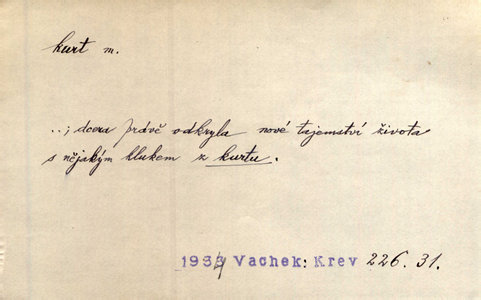 kurt m.
..; dcera právě odkryla nové tajemství života
s nějakým klukem z kurtu.
1934 Vachek: Krev 226. 31.